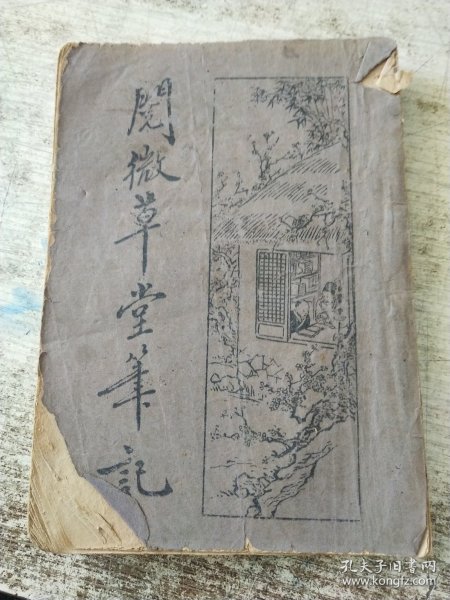 閱微草堂筆記
孔夫子旧书网
www.kongfz.com